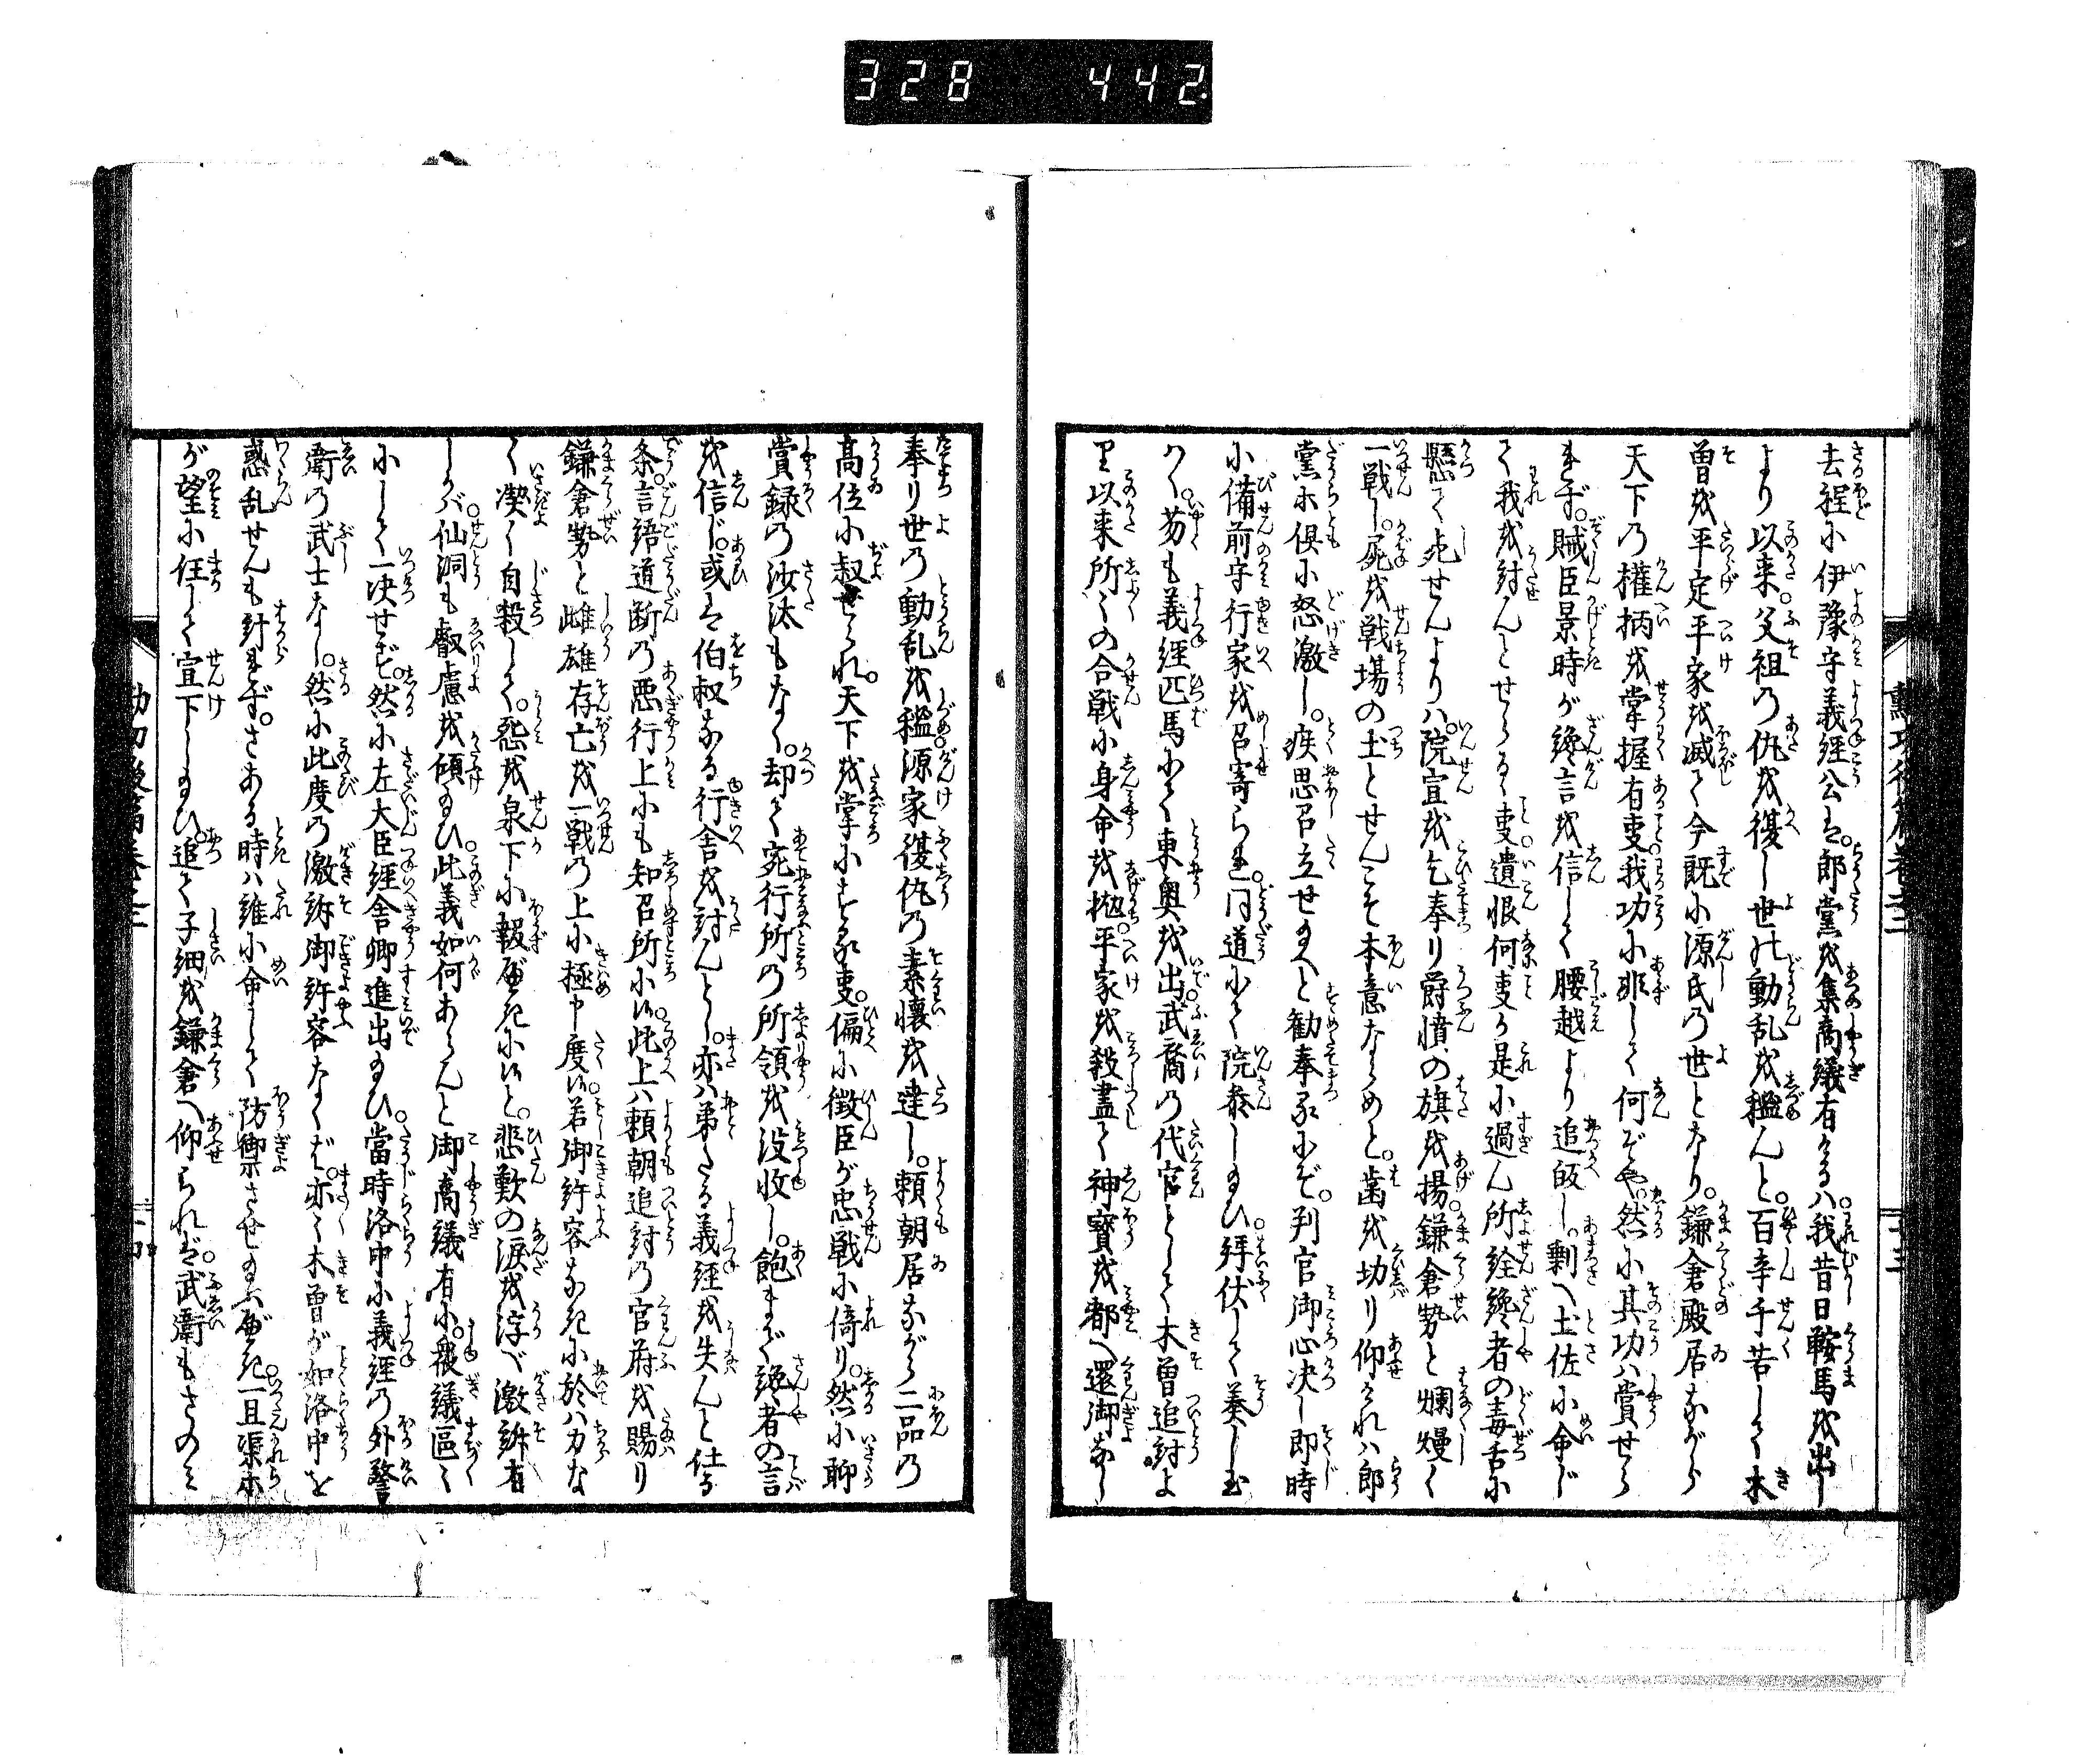 328 442
去程に伊豫守義經公は。郎黨を集商議有けるハ。我昔日鞍馬を出し
より以来。父祖の仇を復し世の動乱を穏んと。百辛千苦して木
曽を平定平家を滅て今既に源氏の世となり。鎌倉殿居ながら
天下の権柄を掌握有事。我功に非して何ぞや。然に其功ハ賞せら
れず。賊臣景時が讒言を信して腰越より追皈し。剰へ土佐に命じ
て我を討んとせらるゝ事。遺恨何事か是に過ん所詮讒者の毒舌に
懸て死せんよりハ。院宣を乞奉り爵憤の旗を揚。鎌倉勢と爛熳く
一戦し。屍を戦場の土とせんこそ本意ならめと。歯を切り仰けれハ郎
黨亦倶に怒激し。疾思召立せ給へと勧奉るにぞ。判官御心决し即時
に備前守行家を召寄られ。同道にて院参し給ひ。拝伏して奏し玉
はく。苟も義經匹馬にて東奥を出。武裔の代官として木曽追討よ
り以来所々の合戦に身命を抛。平家を殺盡て神寳を都へ還御なし
奉り世の動乱を穏源家復仇の素懐を達し。頼朝居ながら二品の
高位に叙せられ。天下を掌にする事。偏に微臣が忠戦に倚り。然に聊
賞録の沙汰もなく。却て宛行所の所領を没收し。飽まで讒者の言
を信じ。或は伯叔なる行舎を討んとし。亦ハ弟たる義經を失んと仕る
条。言語道断の悪行上にも知召所に候。此上ハ頼朝追討の官府を賜り
鎌倉勢と雌雄存亡を一戦の上に極申度候。若御許容なきに於ハ力な
く潔く自殺して。怨を泉下に報ずべきに候と。悲歎の涙を浮べ激訴有
しかバ仙洞も叡慮を傾給ひ。此義如何あらんと御商議有に。衆議區々
にして一决せざ。然に左大臣經舎卿進出給ひ。當時洛中に義經の外警
衛の武士なし。然に此度の激訴御許容なくば。亦々木曽が如洛中を
惑乱せんも計れず。さある時ハ誰に命して防禦させ給ふべき。一旦渠亦
が望に任して宣下し給ひ。追て子細を鎌倉へ仰られば。武衛もさのミ